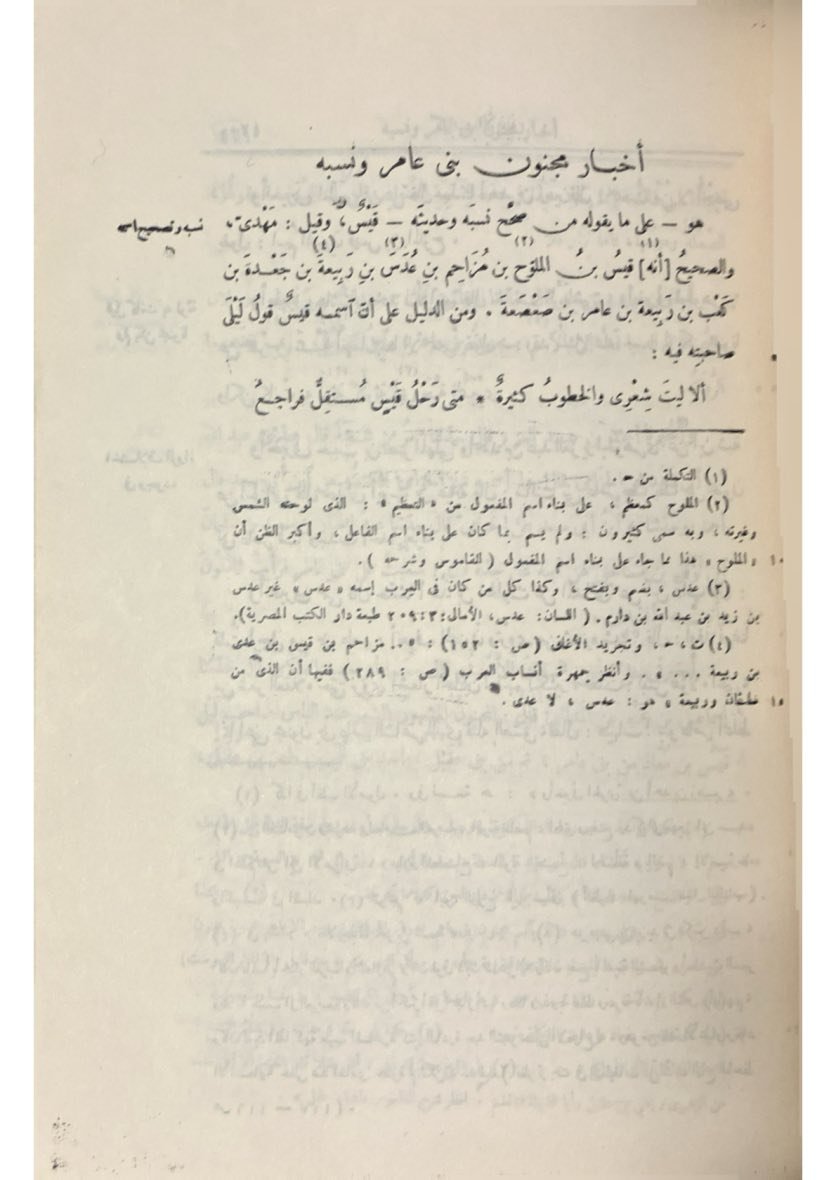 أخبار مجنون بنى عامر ونسبه
هو – على ما يقوله من صحّح نسبَه وحديثَه – قَيْسٌ، وقيل : مَهْدىّ،
نسبه وتصحيح اسمه
والصحيحُ [أنه](١) قيسُ بنُ الملوّح(٢) بن مُزَاحِم بنِ عُدَسَ(٣) بنِ رَبِيعةَ(٤) بن جَعْدةَ بن
كَعْب بن رَبِيعة بن عامر بن صَعْصَعةَ . ومن الدليل على أنّ آسمه قيسٌ قولُ لَيْلَى
صاحبتِه فيه :
ألا ليتَ شِعْرِى والخطوبُ كثيرةٌ * متى رَحْلُ قَيْسٍ مُستقِلٌّ فراجعُ
(١) التكملة من حـ .
(٢) الملوح كمعظم ، على بناء اسم المفعول من «التعظيم» : الذى لوحته الشمس
وغيرته ، وبه سمى كثيرون : ولم يسم بما كان على بناء اسم الفاعل ، وأكبر الظن أن
١٠ «الملوح» هذا مما جاء على بناء اسم المفعول ( القاموس وشرحه ) .
(٣) عدس ، بضم ويفتح ، وكذا كل من كان فى العرب إسمه «عدس» غير عدس
بن زيد بن عبد الله بن دارم . ( اللسان : عدس ، الأمالى : ٣ : ٢٠٩ طبعة دار الكتب المصرية).
(٤) ت ، حـ ، وتجريد الأغانى ( ص : ١٥٢ ) : «.. مزاحم بن قيس بن عدى
بن ربيعة ... » . وأنظر جمهرة أنساب العرب ( ص : ٢٨٩ ) ففيها أن الذى من
١٥ وربيعة » هو : عدس ، لا عدى .